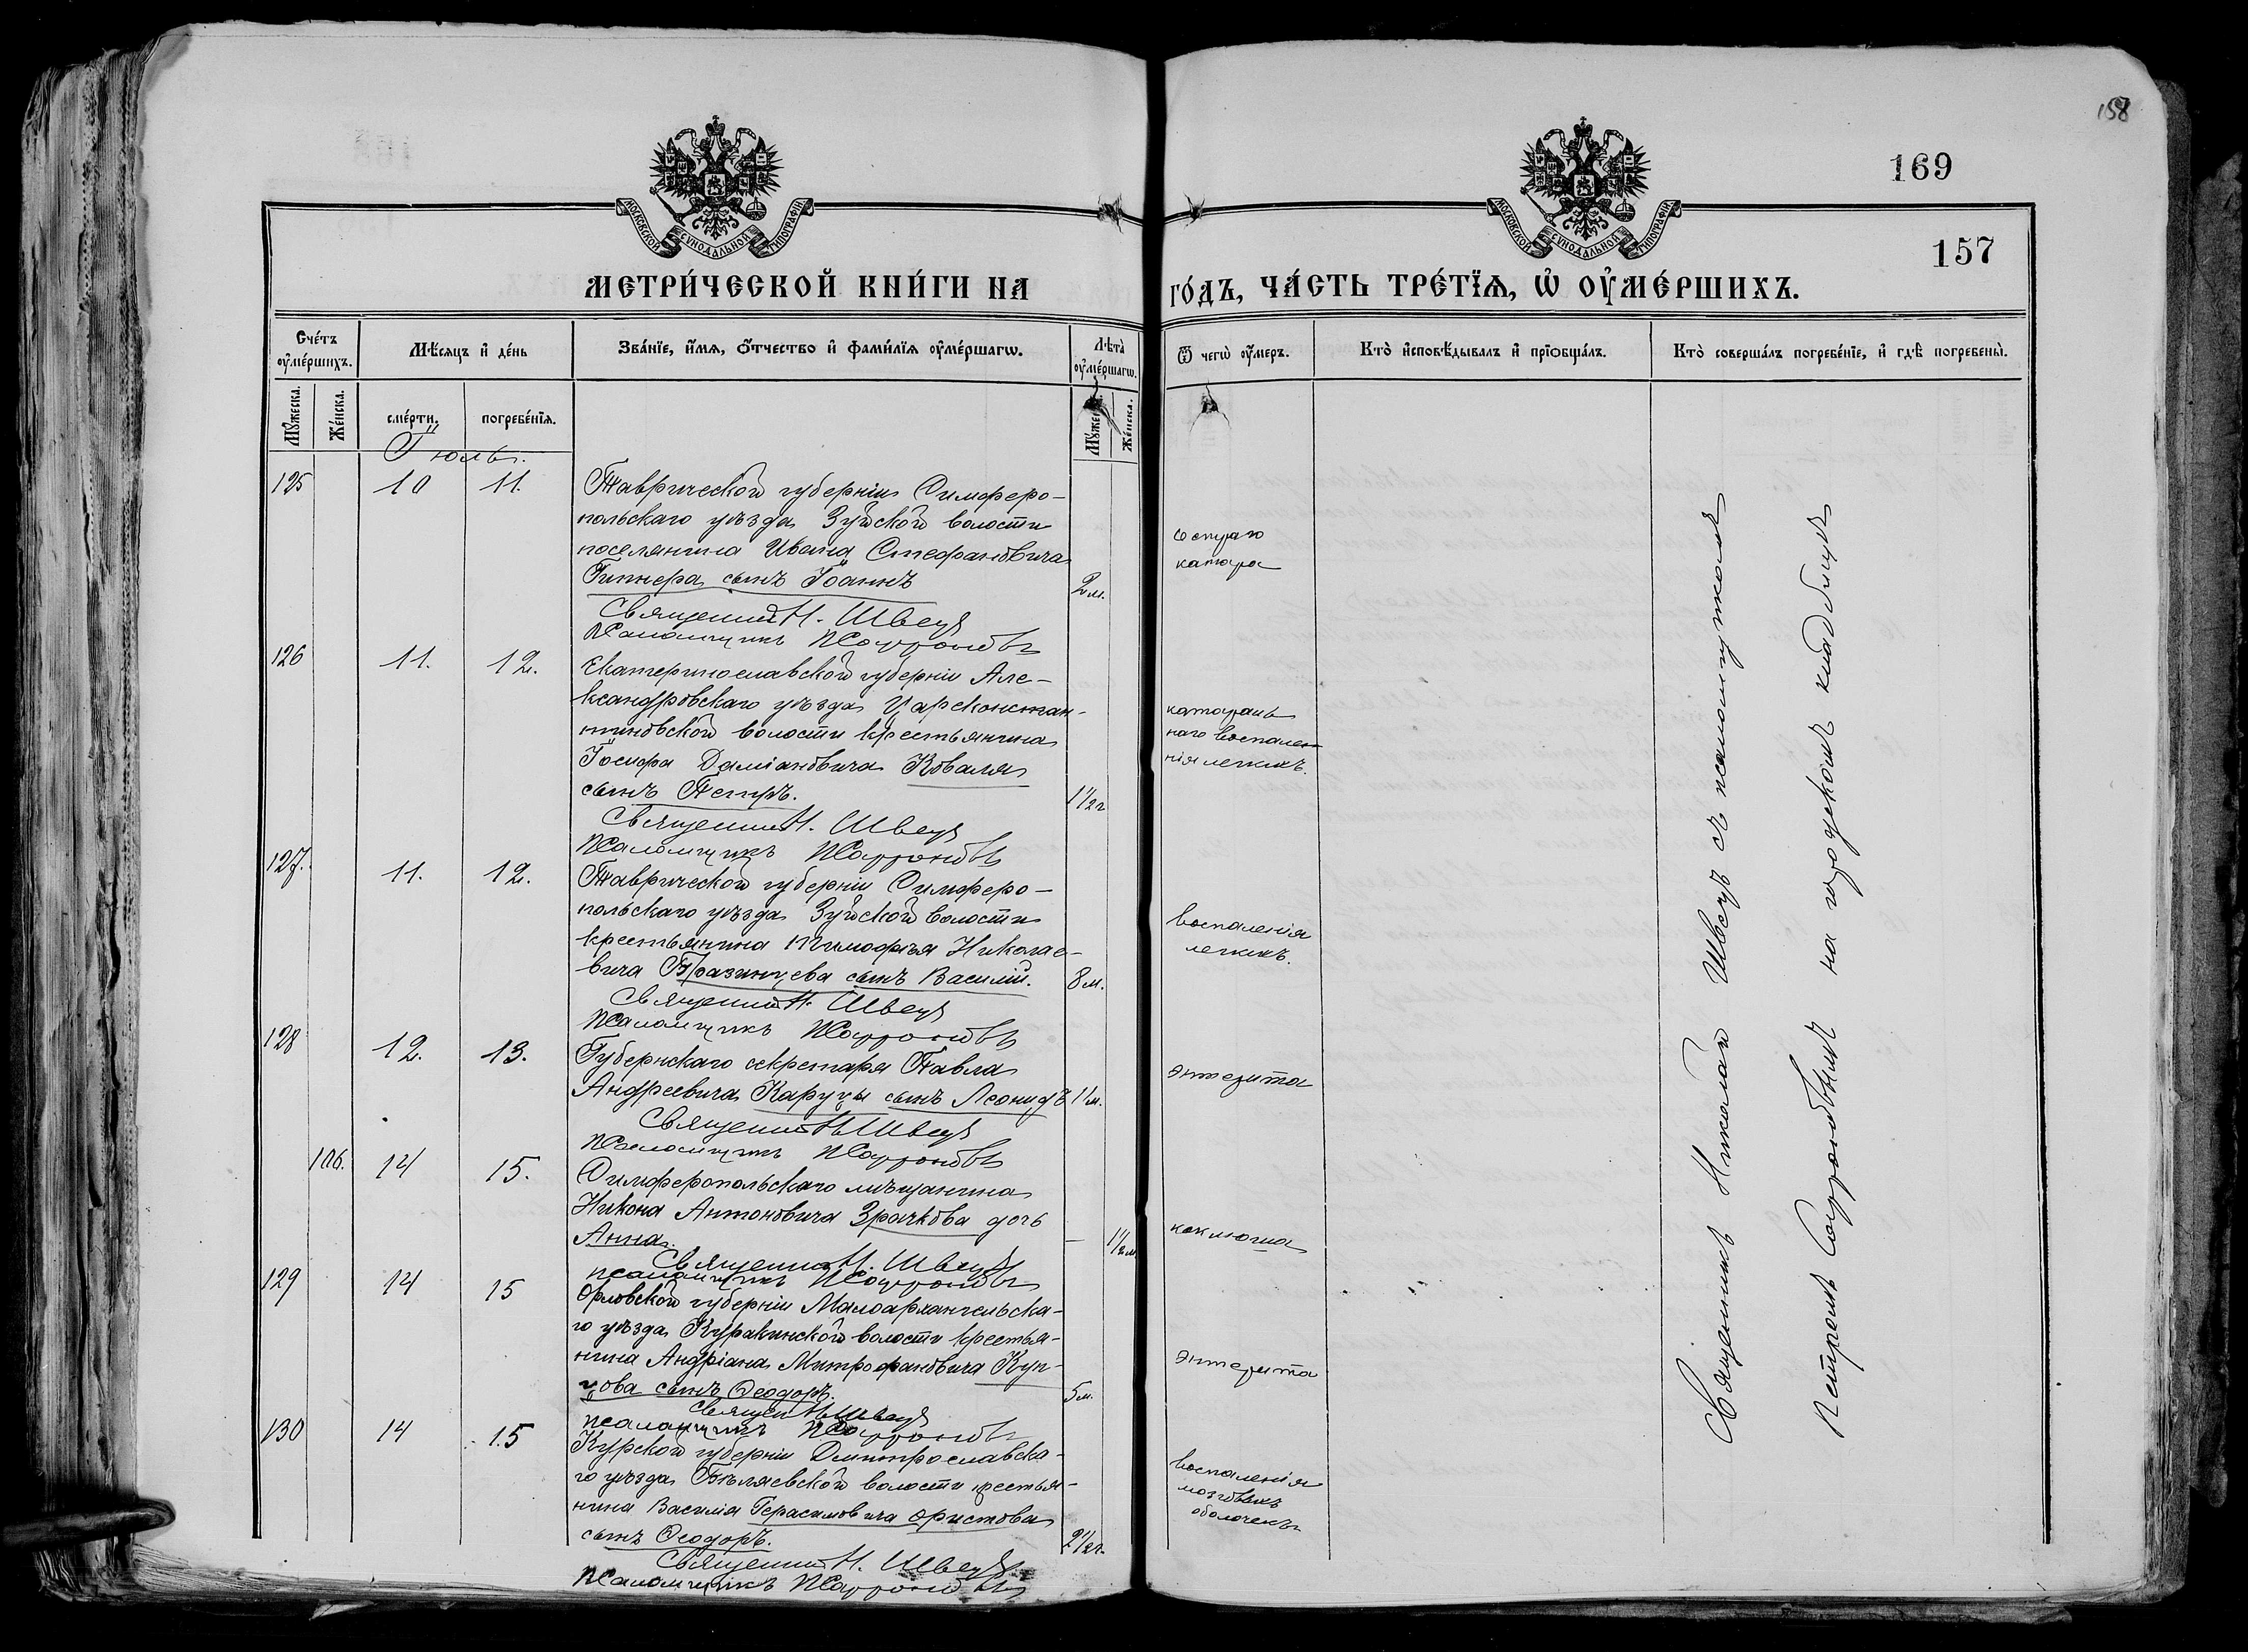 158
169
157
МОСКОВСКОЙ СѴНОДАЛЬНОЙ ТИПОГРАФІИ
МОСКОВСКОЙ СѴНОДАЛЬНОЙ ТИПОГРАФІИ
МЕТРИ́ЧЕСКОЙ КНИ́ГИ НА
ГО́ДЪ, ЧА́СТЬ ТРЕ́ТЇѦ, Ѡ҆ ОУ҆МЕ́РШИХЪ.
Сче́тъ оу҆ме́ршихъ.
Мѣ́сѧцъ и҆ де́нь
Зва́нїе, и҆́мѧ, ѻ҆́тчество и҆ фами́лїѧ оу҆ме́ршагѡ.
Лѣта̀ оу҆ме́ршагѡ.
Ѿ чегѡ̀ оу҆́меръ.
Кто̀ и҆сповѣ́дывалъ и҆ прїѡбща́лъ.
Кто̀ соверша́лъ погребе́нїе, и҆ гдѣ̀ погребены̀.
Мꙋ́жеска.
Же́нска.
сме́рти.
погребе́нїѧ.
Же́нска.
Іюль.
125 10 11.
Таврической губерніи Симферо-
польскаго уѣзда Зуйской волости
поселянина Ивана Стефановича
Гиппера сынъ Іоаннъ
2 м.
остраго
катара
Священник Н. Швецъ
Псаломщикъ П Софроновъ
126 11. 12.
Екатеринославской губерніи Але-
ксандровскаго уѣзда Царсконстан-
тиновской волости крестьянина
Іосифа Даміановича Коваля
сынъ Петръ.
1 1/2 г
катараль
наго воспале
нія легкихъ.
Священник Н. Швецъ
Псаломщикъ П Софроновъ
127. 11. 12.
Таврической губерніи Симферо-
польскаго уѣзда Зуйской волости
крестьянина Тимофѣя Николае-
вича Бразинцева сынъ Василій.
8 м.
воспаленія
легкихъ.
Священник Н. Швецъ
Псаломщикъ П Софроновъ
128 12. 13.
Губернскаго секретаря Павла
Андреевича Каруцы сынъ Леонидъ
энтерита
Священник Н Швецъ
Псаломщикъ П Софроновъ
106. 14 15.
Симферопольскаго мѣщанина
Никона Антоновича Зрачкова дочь
Анна.
1 1/2 м
коклюша
Священник Н. Швецъ
псаломщикъ П Софроновъ
129 14 15
Орловской губерніи Малоархангельска-
го уѣзда Куракинской волости крестья-
нина Андріана Митрофановича Куп-
цова сынъ Ѳеодоръ.
5 м.
энтерита
Священ Н Швецъ
псаломщикъ П Софроновъ
130 14 15
Курской губерніи Дмитрославска-
го уѣзда Бѣляевской волости крестья-
нина Василія Герасимовича Фристова
сынъ Ѳеодоръ.
2 1/2 г.
воспаленія
мозговыхъ
оболочекъ
Священник Н. Швецъ
Псаломщикъ П Софроновъ
Священникъ Николай Швецъ съ псаломщикомъ
Петромъ Софроновымъ на городскомъ кладбищѣ